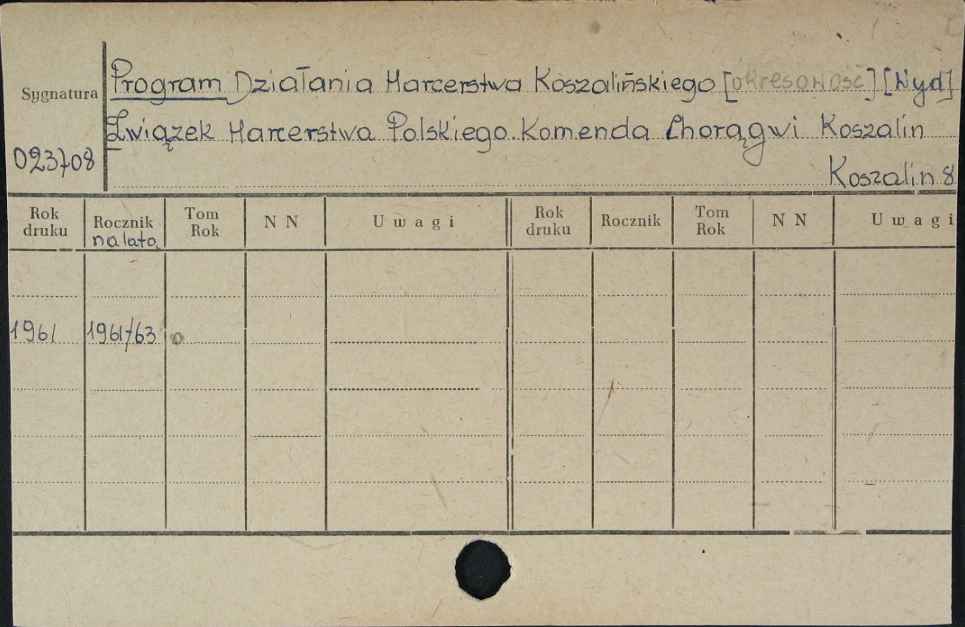 Program Działania Harcerstwa Koszalińskiego [okresowość] [Wyd]
Sygnatura
Związek Harcerstwa Polskiego. Komenda Chorągwi Koszalin
023708
Koszalin 8
Rok druku Rocznik na lata Tom Rok N N Uwagi Rok druku Rocznik Tom Rok N N Uwagi
1961 1961/63 o